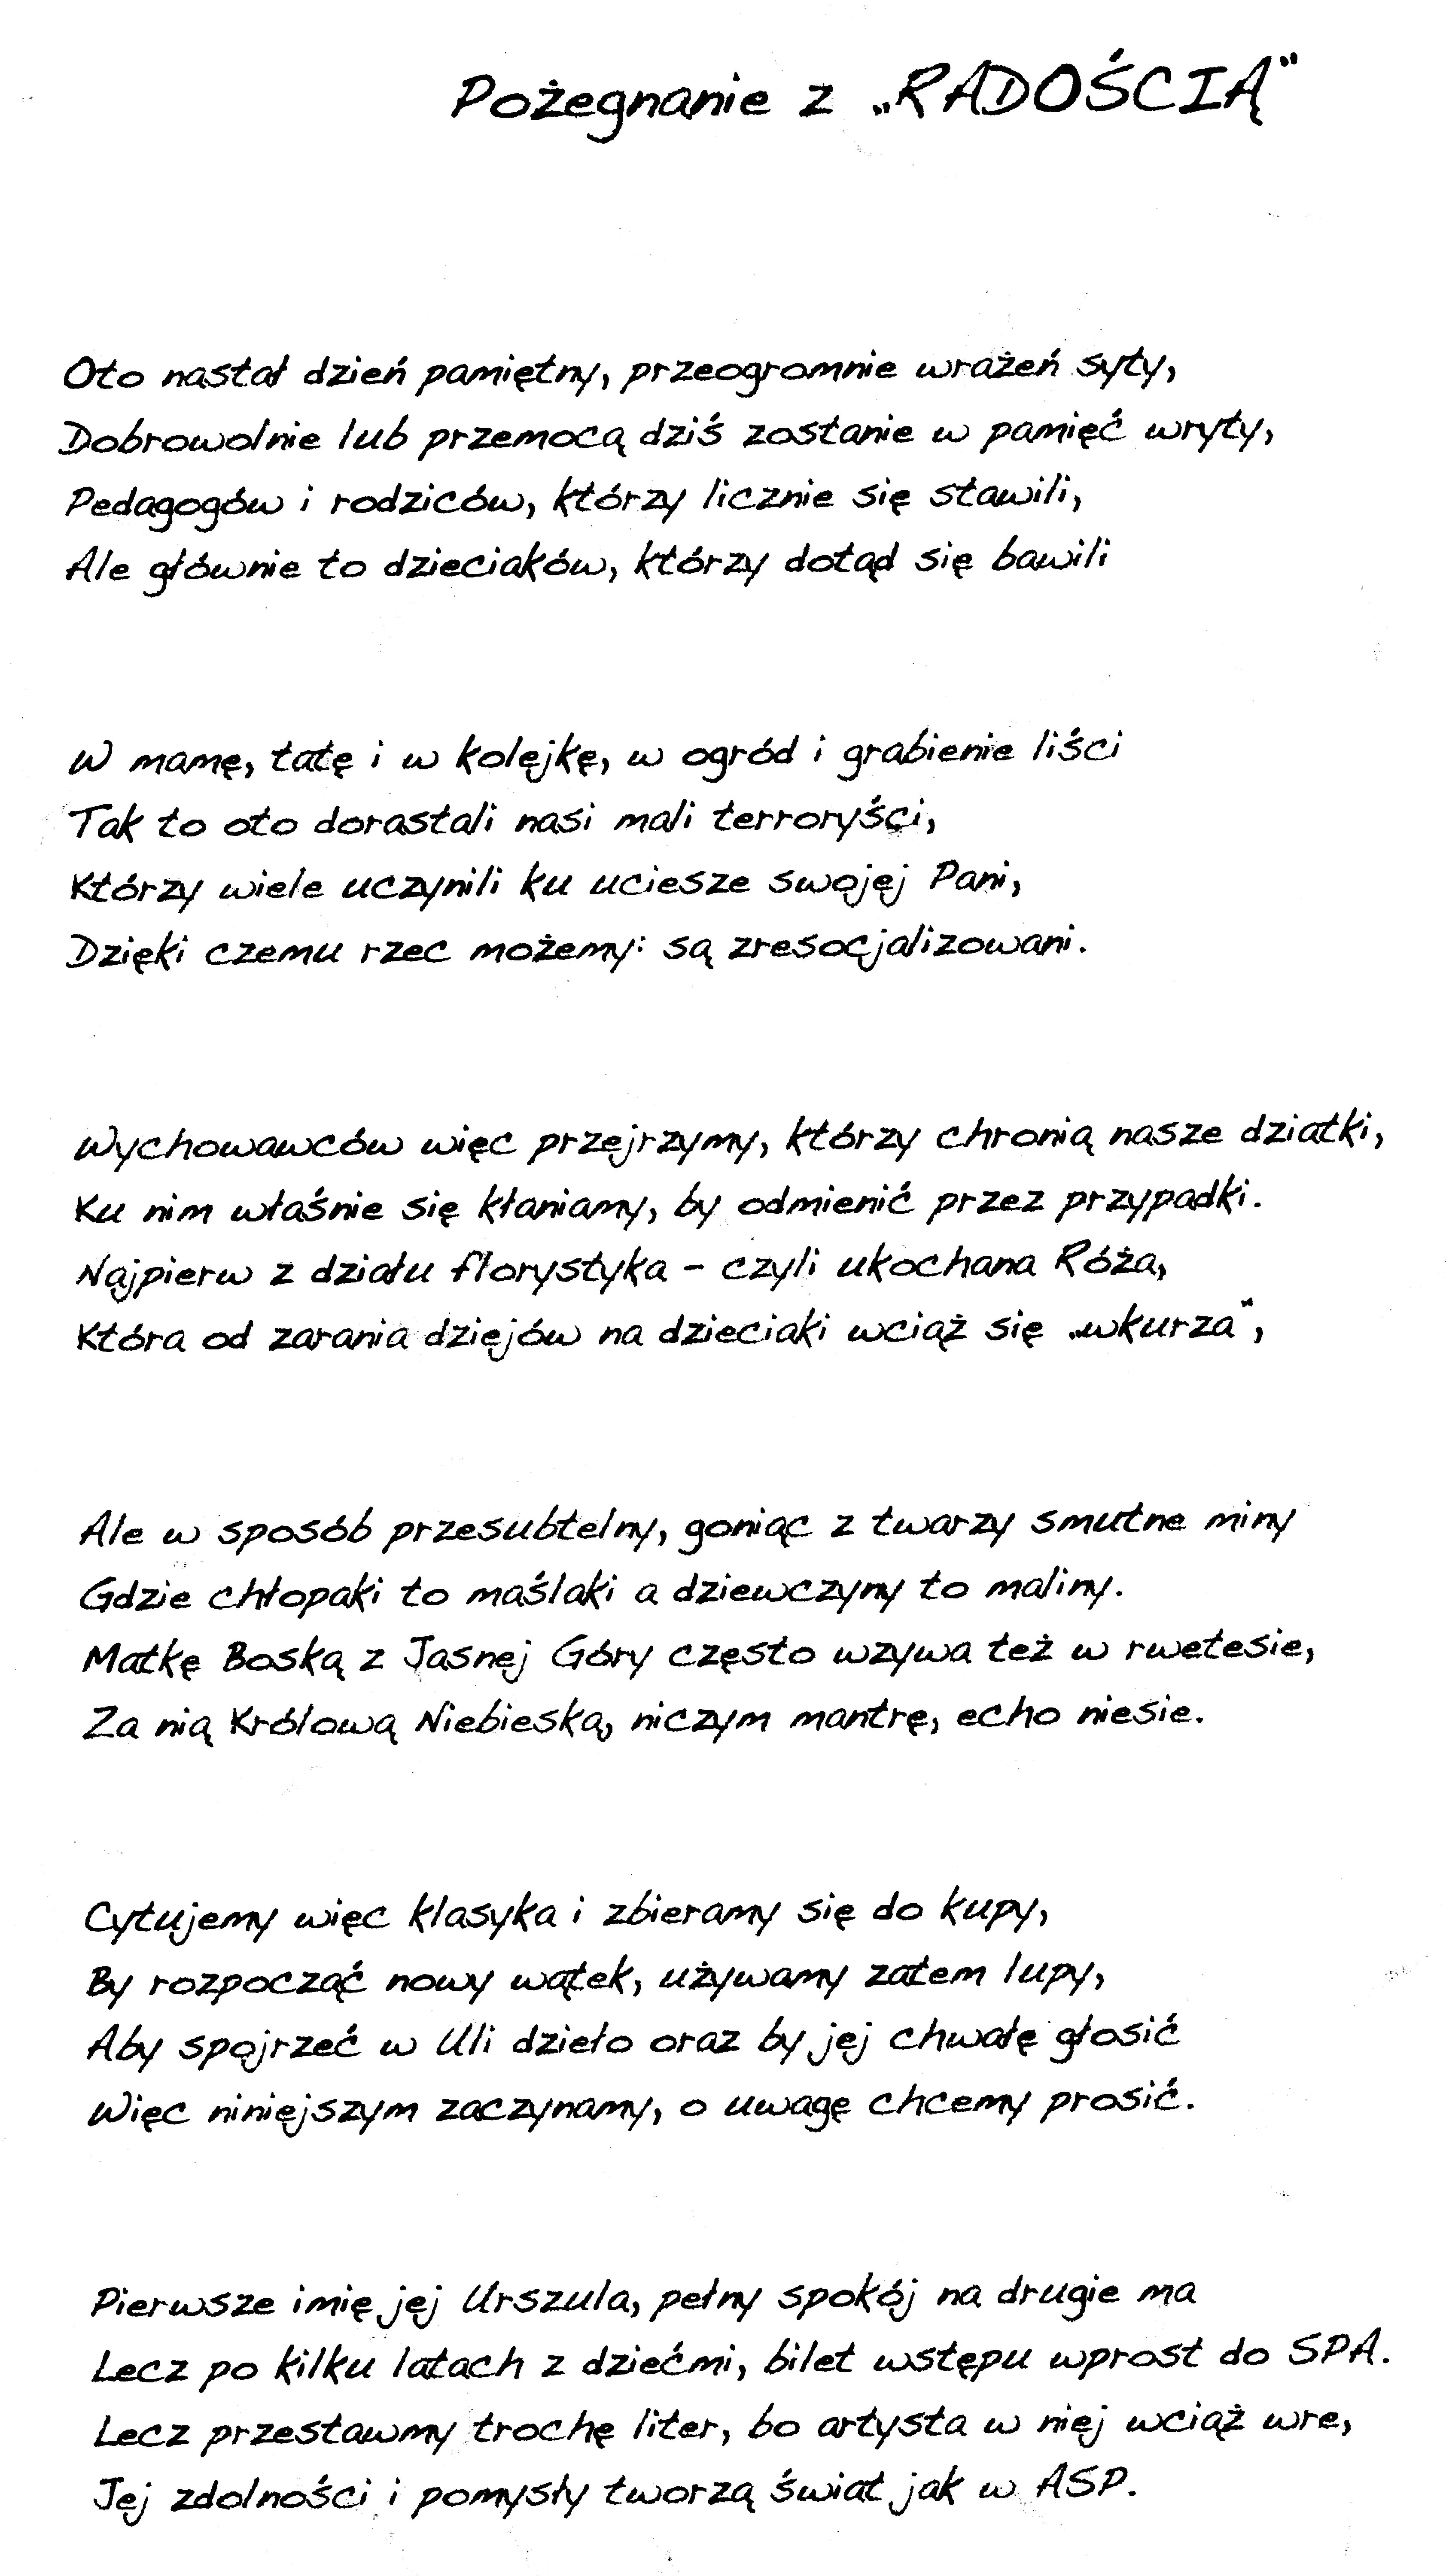 Pożegnanie z „RADOŚCIĄ"
Oto nastał dzień pamiętny, przeogromnie wrażeń syty,
Dobrowolnie lub przemocą dziś zostanie w pamięć wryty,
Pedagogów i rodziców, którzy licznie się stawili,
Ale głównie to dzieciaków, którzy dotąd się bawili
W mamę, tatę i w kolejkę, w ogród i grabienie liści
Tak to oto dorastali nasi mali terroryści,
Którzy wiele uczynili ku uciesze swojej Pani,
Dzięki czemu rzec możemy: są zresocjalizowani.
Wychowawców więc przejrzymy, którzy chronią nasze dziatki,
Ku nim właśnie się kłaniamy, by odmienić przez przypadki.
Najpierw z działu florystyka – czyli ukochana Róża,
Która od zarania dziejów na dzieciaki wciąż się „wkurza",
Ale w sposób przesubtelny, goniąc z twarzy smutne miny
Gdzie chłopaki to maślaki a dziewczyny to maliny.
Matkę Boską z Jasnej Góry często wzywa też w rwetesie,
Za nią Królową Niebieską, niczym mantrę, echo niesie.
Cytujemy więc klasyka i zbieramy się do kupy,
By rozpocząć nowy wątek, używamy zatem lupy,
Aby spojrzeć w Uli dzieło oraz by jej chwałę głosić
Więc niniejszym zaczynamy, o uwagę chcemy prosić.
Pierwsze imię jej Urszula, pełny spokój na drugie ma
Lecz po kilku latach z dziećmi, bilet wstępu wprost do SPA.
Lecz przestawmy trochę liter, bo artysta w niej wciąż wre,
Jej zdolności i pomysły tworzą świat jak w ASP.